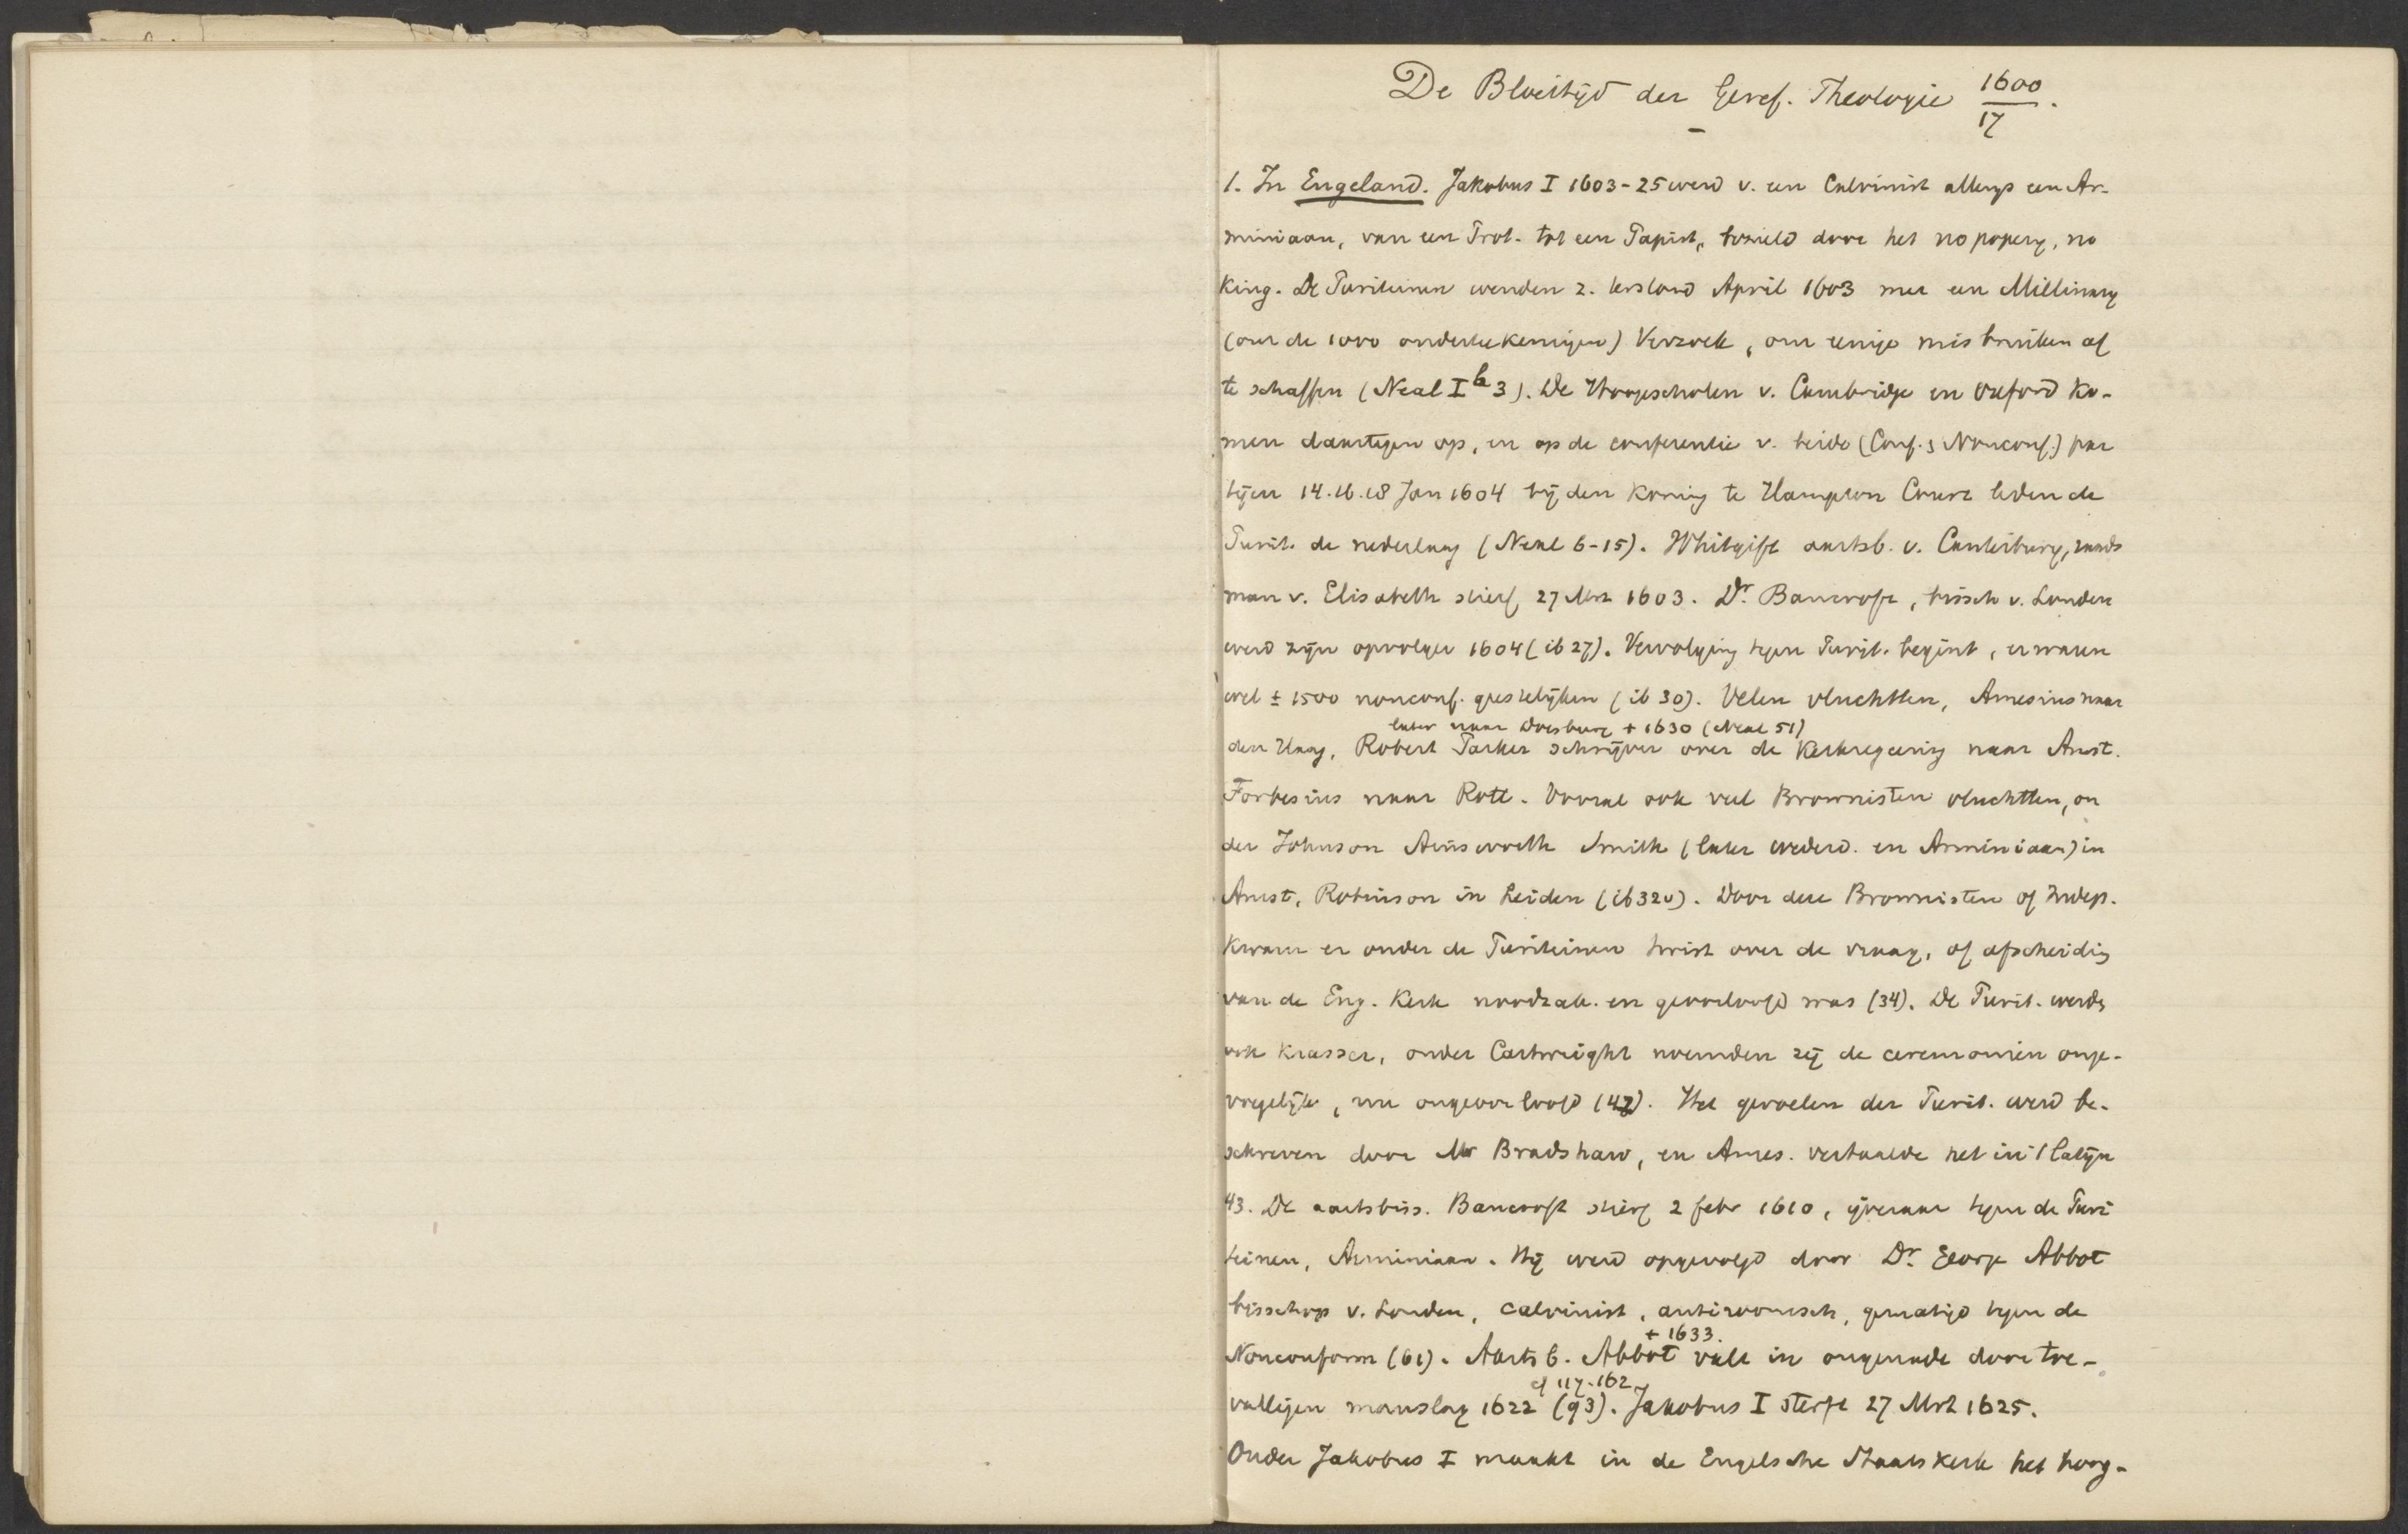 De Bloeitijd der Geref. Theologie 1600/17.
1. In Engeland. Jakobus I 1603-25 werd v. een Calvinist allengs een Ar-
miniaan, van een Prot. tot een Papist, bezield door het no popery, no
King. De Puriteinen wenden z. terstond April 1603 met een Millinary
(over de 1000 onderteekeningen) Verzoek, om eenige misbruiken af
te schaffen (Neal I b 3). De Hoogescholen v. Cambridge en Oxford ko-
men daartegen op, en op de conferentie v. beide (Conf. & Nonconf.) par
tijen 14.16.18 Jan 1604 bij den Koning te Hampton Court leden de
Purit. de nederlaag (Neal 6-15). Whitgift aartsb. v. Canterbury, raads
man v. Elisabeth stierf 27 Mrt 1603. Dr. Bancroft, bissch v. Londen
werd zijn opvolger 1604 (ib 27). Vervolging tegen Purit. begint, er waren
wel ± 1500 nonconf. geestelijken (ib 30). Velen vluchtten, Amesius naar
later naar Doesburg + 1630 (Neal 51)
den Haag, Robert Parker schrijver over de Kerkregeering naar Amst.
Forbesius naar Rott. Vooral ook veel Brownisten vluchtten, on
der Johnson Ainsworth Smith (later wederd. en Arminiaan) in
Amst, Robinson in Leiden (ib 32v). Door deze Brownisten of Indep.
kwam er onder de Puriteinen twist over de vraag, of afscheiding
van de Eng. Kerk noodzak. en geoorloofd was (34). De Purit. werden
ook krasser, onder Cartwright noemden zij de ceremonien onge-
voegelijk, nu ongeoorloofd (42). Het gevoelen der Purit. werd be-
schreven door Mr Bradshaw, en Ames. vertaalde het in 't Latijn
43. De aartsbiss. Bancroft stierf 2 febr 1610, ijveraar tegen de Puri
teinen, Arminiaan. Hij werd opgevolgd door Dr. George Abbot
bisschop v. Londen, calvinist, antiroomsch, gematigd tegen de
+ 1633.
Nonconform (61). Aartsb. Abbot valt in ongenade door toe-
cf 117. 162
valligen manslag 1622 (93). Jakobus I sterft 27 Mrt 1625.
Onder Jakobus I maakt in de Engelsche Staatskerk het hoog-